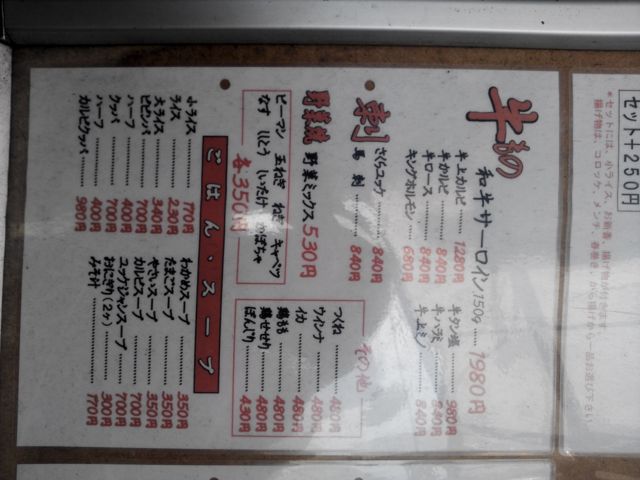 セット+250円
*セットには、小ライス、お新香、揚げ物が付きます。
揚げ物は、コロッケ、メンチ、春巻き、から揚げから一品お選び下さい
牛もの 和牛サーロイン150g 1980円
牛上カルビ 1280円
牛カルビ 840円
牛ロース 840円
キングホルモン 680円
牛タン塩 980円
牛ハラミ 840円
牛上ミノ 840円
刺
さくらユッケ 840円
馬刺 840円
野菜焼 野菜ミックス 530円
ピーマン 玉ねぎ ねぎ キャベツ
なす ししとう しいたけ かぼちゃ
各350円
その他
つくね 480円
ウインナ 480円
イカ 480円
鶏もも 480円
鶏せせり 480円
ぼんじり 430円
ごはん・スープ
小ライス 170円
ライス 230円
大ライス 340円
ビビンバ 700円
ハーフ 400円
クッパ 700円
ハーフ 400円
カルビクッパ 980円
わかめスープ 350円
たまごスープ 350円
やさいスープ 350円
カルビスープ 700円
ユッケジャンスープ 700円
おにぎり(2ヶ) 300円
みそ汁 170円